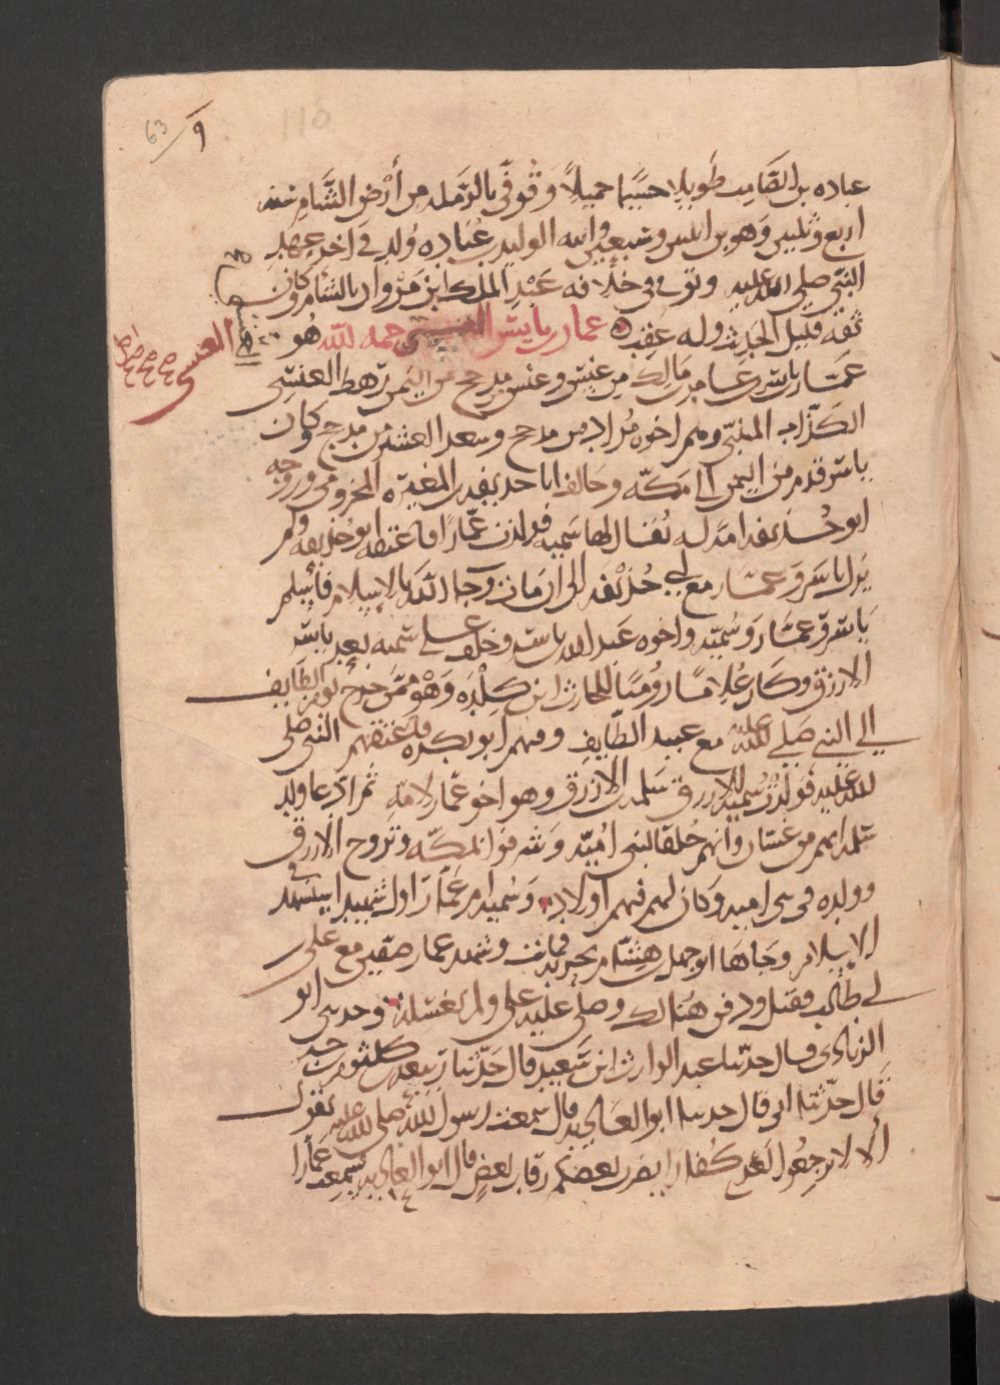 63/9
110
عباده بن الصامت طويلا جسيما جميلاً وتوفي بالرمله من أرض الشام سنه
اربع وثلثين وهو بن اثنين وسبعين وابنه الوليد بن عباده ولد في اخر عهد
النبي صلى الله عليه وتوفي في خلافه عبد الملك ابن مروان بالشام وكان
ثقه قليل الحديث وله عقب ه عمار بن ياسر العنسي رحمه الله هو
العنسي
عمار بن ياسر بن عامر بن مالك من عنس وعنس من مدحج من اليمن رهط العنسي
الكذاب المتنبي ومنهم اخوه مراد من مدحج وسعد العشيره من مدحج وكان
ياسر قدم من اليمن الى مكه وحالف ابا حذيفه بن المغيره المخزومي وزوجه
ابو حذيفه امه له يقال لها سميه فولدت عمارا فاعتقه ابو حذيفه ولم
يزل ياسر وعمار مع ابي حذيفه الى ان مات وجا الله بالاسلام فأسلم
ياسر وعمار وسميه واخوه عبد الله بن ياسر وخلف على سميه بعد ياسر
الازرق وكان غلامًا روميًا للحارث ابن كلده وهو ممن خرج يوم الطايف
الى النبي صلى الله عليه مع عبيد الطايف وفيهم ابو بكره فاعتقهم النبي صلى
الله عليه فولدت سميه للازرق سلمه بن الازرق وهو اخو عمار لامه ثم ادعا ولد
سلمه انهم من غسان وانهم حلفا لبني اميه وشرفوا بمكه وتزوج الازرق
وولده في بني اميه وكان لهم فيهم اولاد وسميه ام عمار اول شهيد استشهد في
الاسلام وجاها ابو جهل بن هشام بحربه فماتت وشهد عمار صفين مع علي
بن ابي طالب فقتل ودفن هنالك وصلى عليه علي ولم يغسله وحدثني ابو
الزيادي قال حدثنا عبد الوارث ابن سعيد قال حدثنا ربيعه بن كلثوم بن جبر
قال حدثنا ابي قال حدثنا ابو الغاديه قال سمعت رسول الله صلى الله عليه يقول
ألا لا ترجعوا بعدي كفارا يضرب بعضكم رقاب بعض قال ابو الغاديه سمعت عمارا